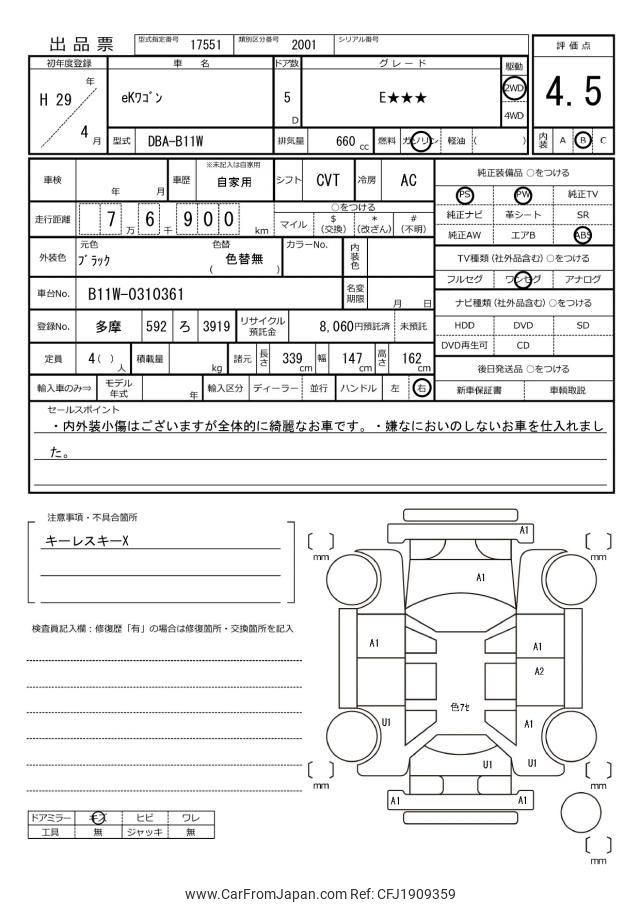 出品票 型式指定番号 17551 類別区分番号 2001 シリアル番号
評価点
4.5
内装 A B C
初年度登録 車名 ドア数 グレード 駆動
H 29 年 4 月 eKワゴン 5 D E★★★ 2WD 4WD
型式 DBA-B11W 排気量 660 cc 燃料 ガソリン 軽油 ( )
車検 年 月 車歴 ※未記入は自家用 自家用 シフト CVT 冷房 AC
走行距離 7 万 6 千 9 0 0 km
○をつける
マイル $ (交換) * (改ざん) # (不明)
外装色 元色 ブラック 色替 ( 色替無 ) カラーNo. 内装色
車台No. B11W-0310361 名変期限 月 日
登録No. 多摩 592 ろ 3919 リサイクル預託金 8,060円預託済 未預託
定員 4( ) 人 積載量 kg 諸元 長さ 339 cm 幅 147 cm 高さ 162 cm
輸入車のみ⇒ モデル年式 年 輸入区分 ディーラー 並行 ハンドル 左 右
純正装備品 ○をつける
PS PW 純正TV
純正ナビ 革シート SR
純正AW エアB ABS
TV種類 (社外品含む) ○をつける
フルセグ ワンセグ アナログ
ナビ種類 (社外品含む) ○をつける
HDD DVD SD
DVD再生可 CD
後日発送品 ○をつける
新車保証書 車輌取説
セールスポイント
・内外装小傷はございますが全体的に綺麗なお車です。・嫌なにおいのしないお車を仕入れまし
た。
注意事項・不具合箇所
キーレスキーX
検査員記入欄:修復歴「有」の場合は修復箇所・交換箇所を記入
ドアミラー キズ ヒビ ワレ
工具 無 ジャッキ 無
A1
mm mm
A1
A1 A1
A2
色アセ
U1 A1
U1 U1
mm mm
A1 A1
mm
www.CarFromJapan.com Ref: CFJ1909359